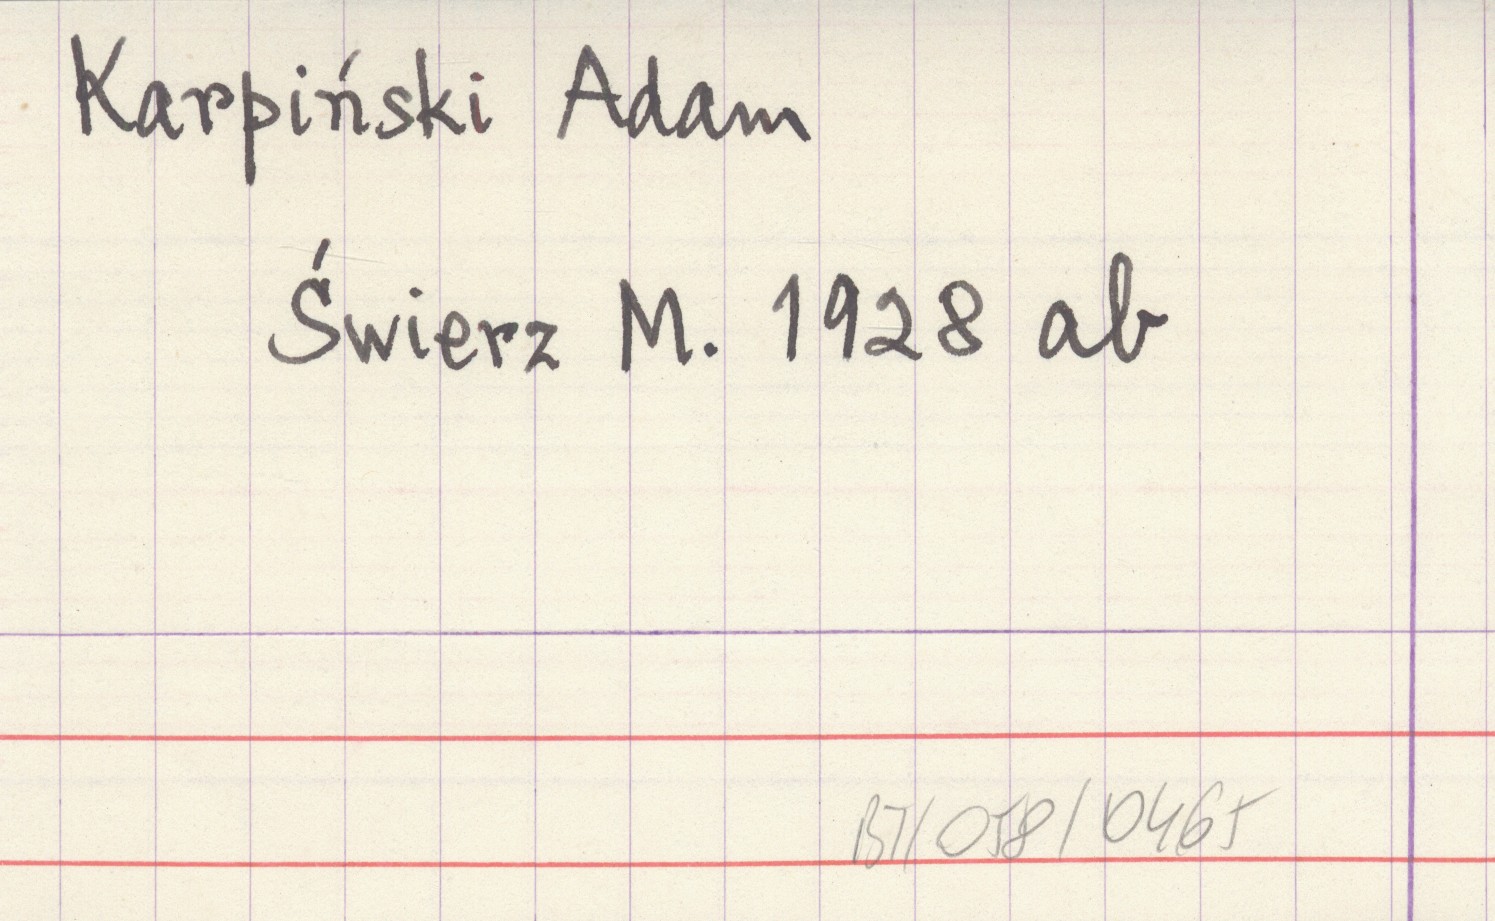 Karpiński Adam
Świerz M. 1928 ab
BT/058/0465